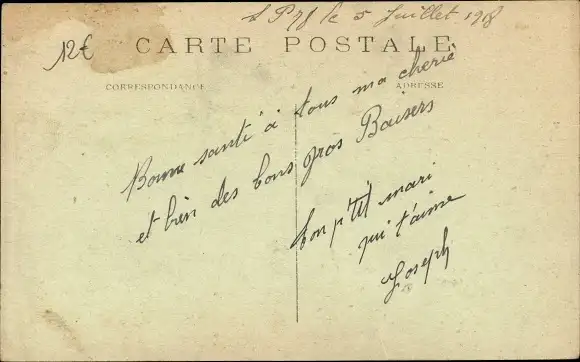 le 5 Juillet 1918
12€
CARTE POSTALE
CORRESPONDANCE
ADRESSE
Bonne santé à tous ma cherie
et bien des bons gros Baisers
ton p'tit mari
qui t'aime
Joseph